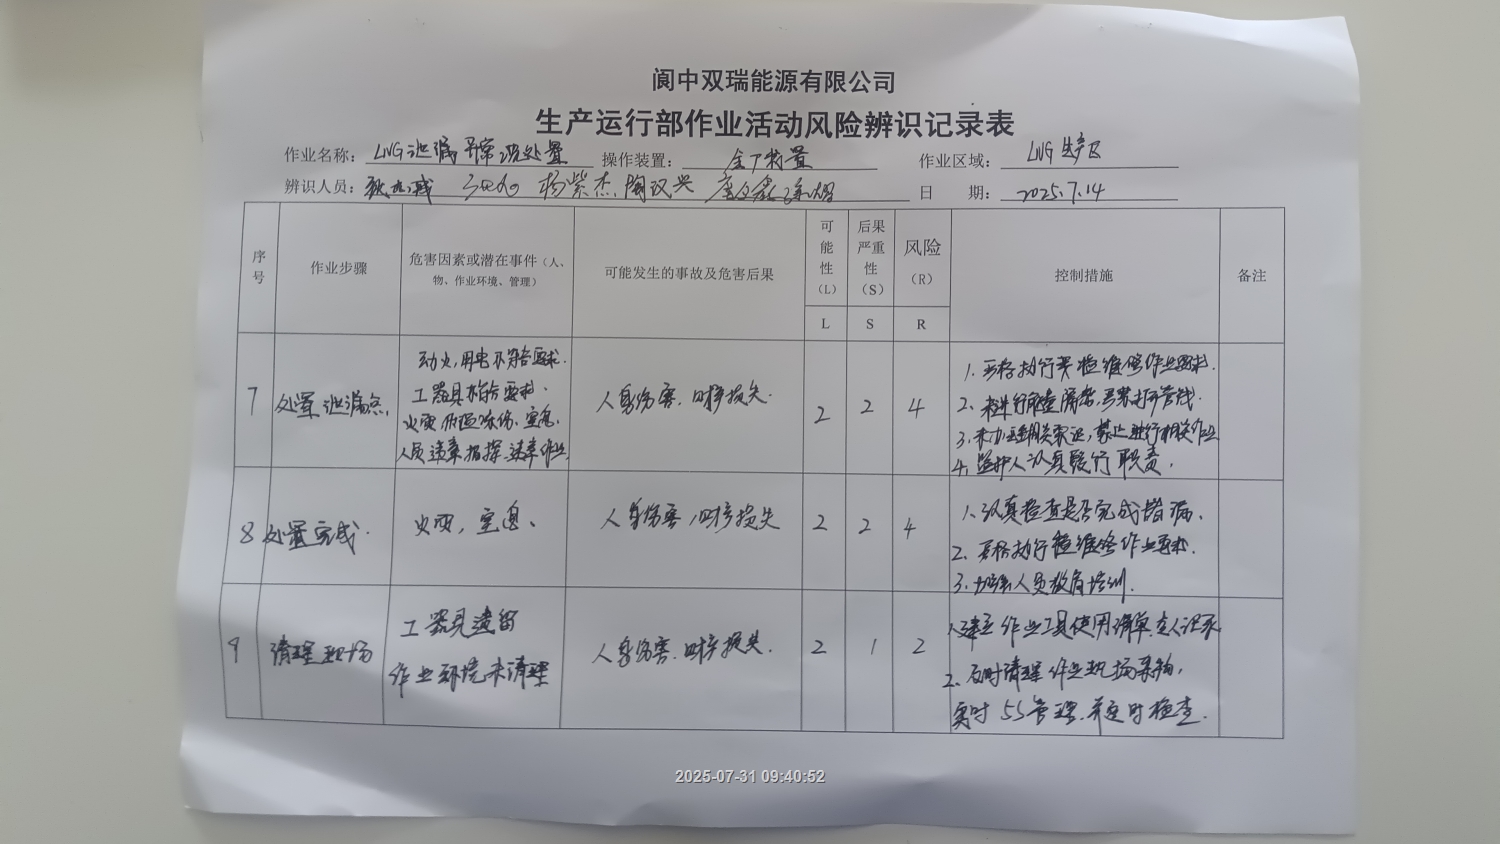 阆中双瑞能源有限公司
生产运行部作业活动风险辨识记录表
作业名称： LNG泄漏异常 处置 操作装置： 全厂装置 作业区域： LNG生产区
辨识人员： 杨紫杰 陶汉兴 日 期： 2025.7.14
序号 作业步骤 危害因素或潜在事件（人、物、作业环境、管理） 可能发生的事故及危害后果 可能性（L） 后果严重性（S） 风险（R） 控制措施 备注
L S R
7 处置泄漏点. 人身伤害.财产损失. 2 2 4
动火,用电不符合要求.
工器具不符合要求.
火灾 低温冻伤、窒息.
人员违章指挥.违章作业
1. 严格执行 检维修作业要求.
2. 未进行 严禁打开管线.
3. 未办理相关票证,禁止进行相关作业
4. 监护人认真履行职责.
8 处置完成. 火灾,窒息、 人身伤害,财产损失 2 2 4
1. 认真检查是否完成堵漏.
2. 严格执行检维修作业要求.
3. 加强人员教育培训.
9 清理现场 人身伤害.财产损失. 2 1 2
工器具遗留
作业环境未清理
1. 建立作业工具使用清单 记录
2. 及时清理作业现场杂物,
实时5S管理. 定时检查.
2025-07-31 09:40:52